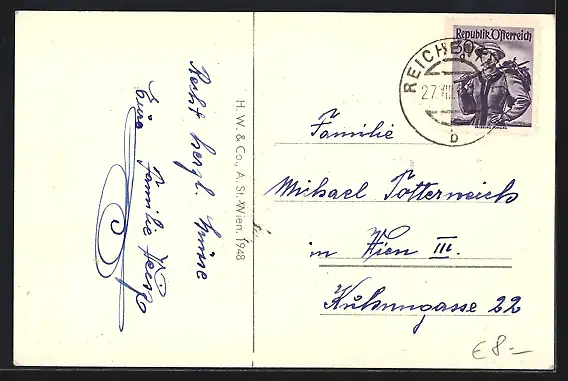 Recht herzl. Grüsse
Eure Familie
H. W. & Co., A. St. Wien. 1948
Republik Österreich
27.VIII.
b
Familie
Michael Totterweich
in Wien III.
22
€ 8.-